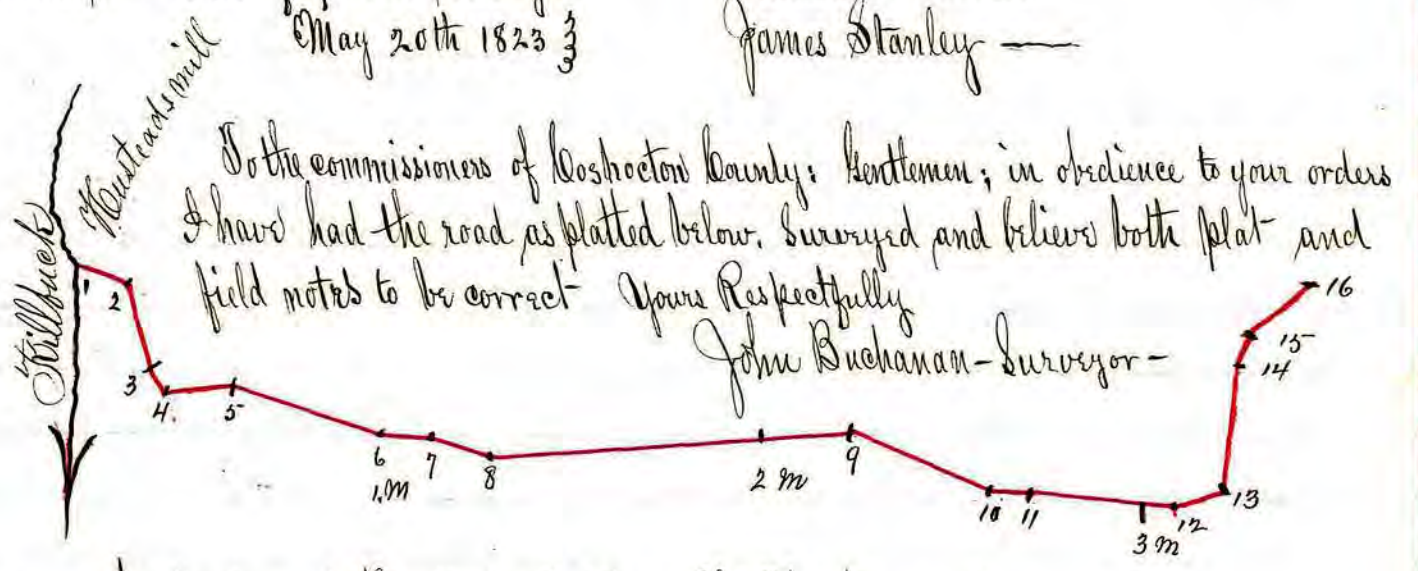 May 20th 1823
James Stanley
Killbuck
Husteads mill
To the commissioners of Coshocton County: Gentlemen; in obedience to your orders
I have had the road as platted below. Surveyed and believe both plat and
field notes to be correct Yours Respectfully
John Buchanan - Surveyor -
1
2
3
4.
5
6
1.M
7
8
2 m
9
10
11
3 m
12
13
14
15
16